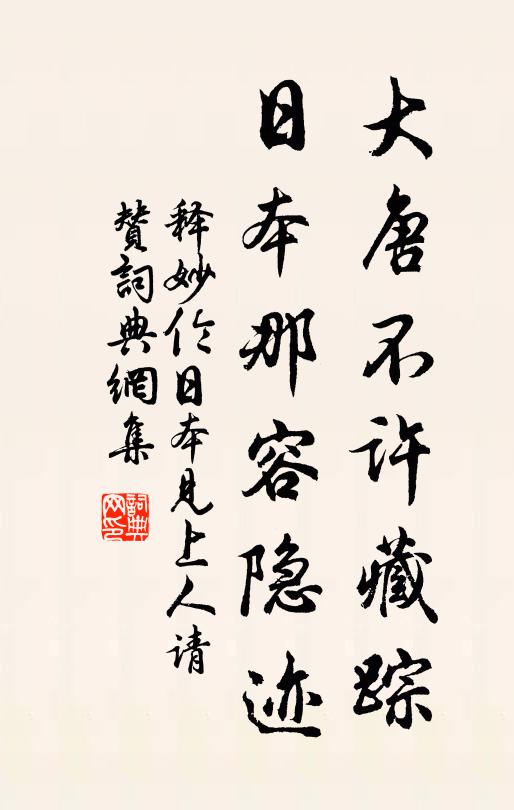 大唐不许藏踪
日本那容隐迹
释妙伦日本见上人请
赞詞典網集
詞典网印